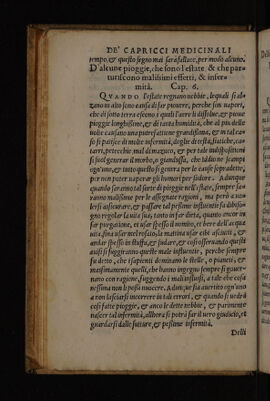 DE' CAPRICCI MEDICINALI
tempo, & questo segno mai sarà fallace, per modo alcuno.
D'alcune pioggie, che sono l'estate & che par-
turiscono malissimi effetti, & infer-
mità. Cap. 6.
QVANDO l'estate regnano nebbie, lequali si al-
zano in alto sono causa di far piouere, perche son uapori,
che di sotto terra escono i quali l'aere li dissolue, & pione
pioggie longhissime, & di tanta humidità, che al più delle
uolte causano una putrefattione grandissima, & in tal ca-
so si patisce di molte infermità, doglie di testa, flussi, ca-
tarri, petecchie mal di mazzuco, & tal uolte politioni
si suol generar il morbo, e giandussa, che Iddio ne scampi
ogn'uno, & tutto questo si genera per le cause sopradette,
per non poter uaporar gli humori per sudore. Adunque
quando saranno tal sorte di pioggie nell'estate, sempre sa-
ranno malissime per le assegnate ragioni, ma però a uo-
lersi assicurare, & passare tal pessime influentie fa dibiso-
gno regolar la uita sua, tanto in far dieta, quanto ancor in
far purgationi, et usar spesso il uomito, et bere dell'acqua
cotta, sina usar mel rosato, la matina usar cibi asciutti, &
andar spesso in stuffa, & sudare, & così osseruando questi
auisi si fuggiranno queste male influentie, perche sempre
fu detto, che i sapienti dominano le stelle, o pianeti, &
massimamente quelli, che hanno ingegno sempre si gouer-
nato con ragione, fuggendo i mali influssi, a tale che cosa
nessuna non li possa nuocere. Adunque sia auertito ogn'uno
a non lasciarsi incorrere in tali errori, & quando si uedrà
così fatte pioggie, & anco le dette nebbie, & parimente
nascer tal infermità, allhora si potrà far il uero giudicio, et
guardarsi dalle future, & pessime infermità.
Delli